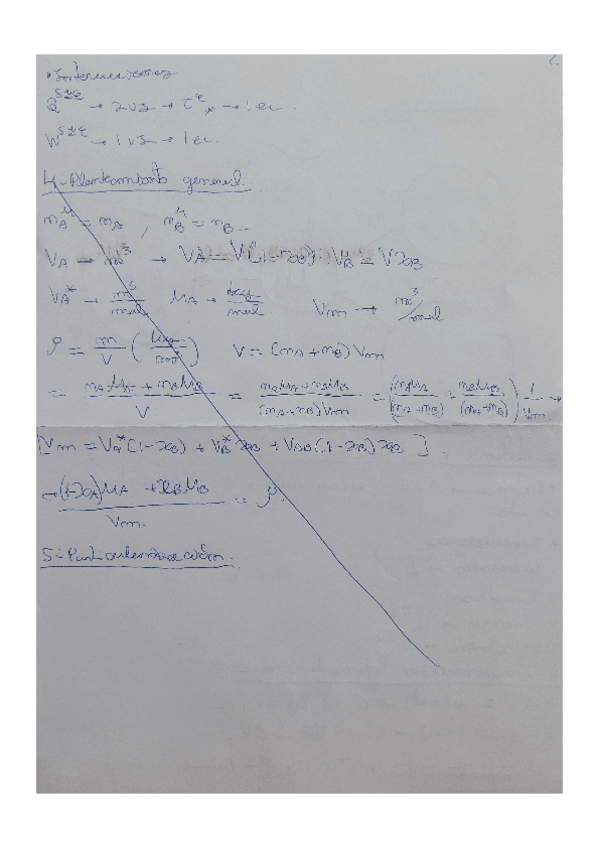 • Interacciones
Q^{S±E} → 2 vs → τ^e, * → 1 ec.
W^{S±E} → 1 vs → 1 ec.
4.- Planteamiento general.
n_A = n_A , n_B = n_B
V_A → m^3 → V_A = V(1-x_B) V_B = V x_B
V_A^* → m^3/mol μ_A → kg/mol V_m → m^3/mol
ρ = m/V (kg/m^3) V = (n_A + n_B) V_m
= (n_A μ_A + n_B μ_B)/V = (n_A μ_A + n_B μ_B)/((n_A + n_B) V_m) = (n_A μ_A/(n_A + n_B) + n_B μ_B/(n_A + n_B)) 1/V_m →
[V_m = V_A^*(1-x_B) + V_B^* x_B + V_{AB}(1-x_B) x_B].
→ ((1-x_A) μ_A + x_B μ_B)/V_m = ρ.
5.- Particularización.